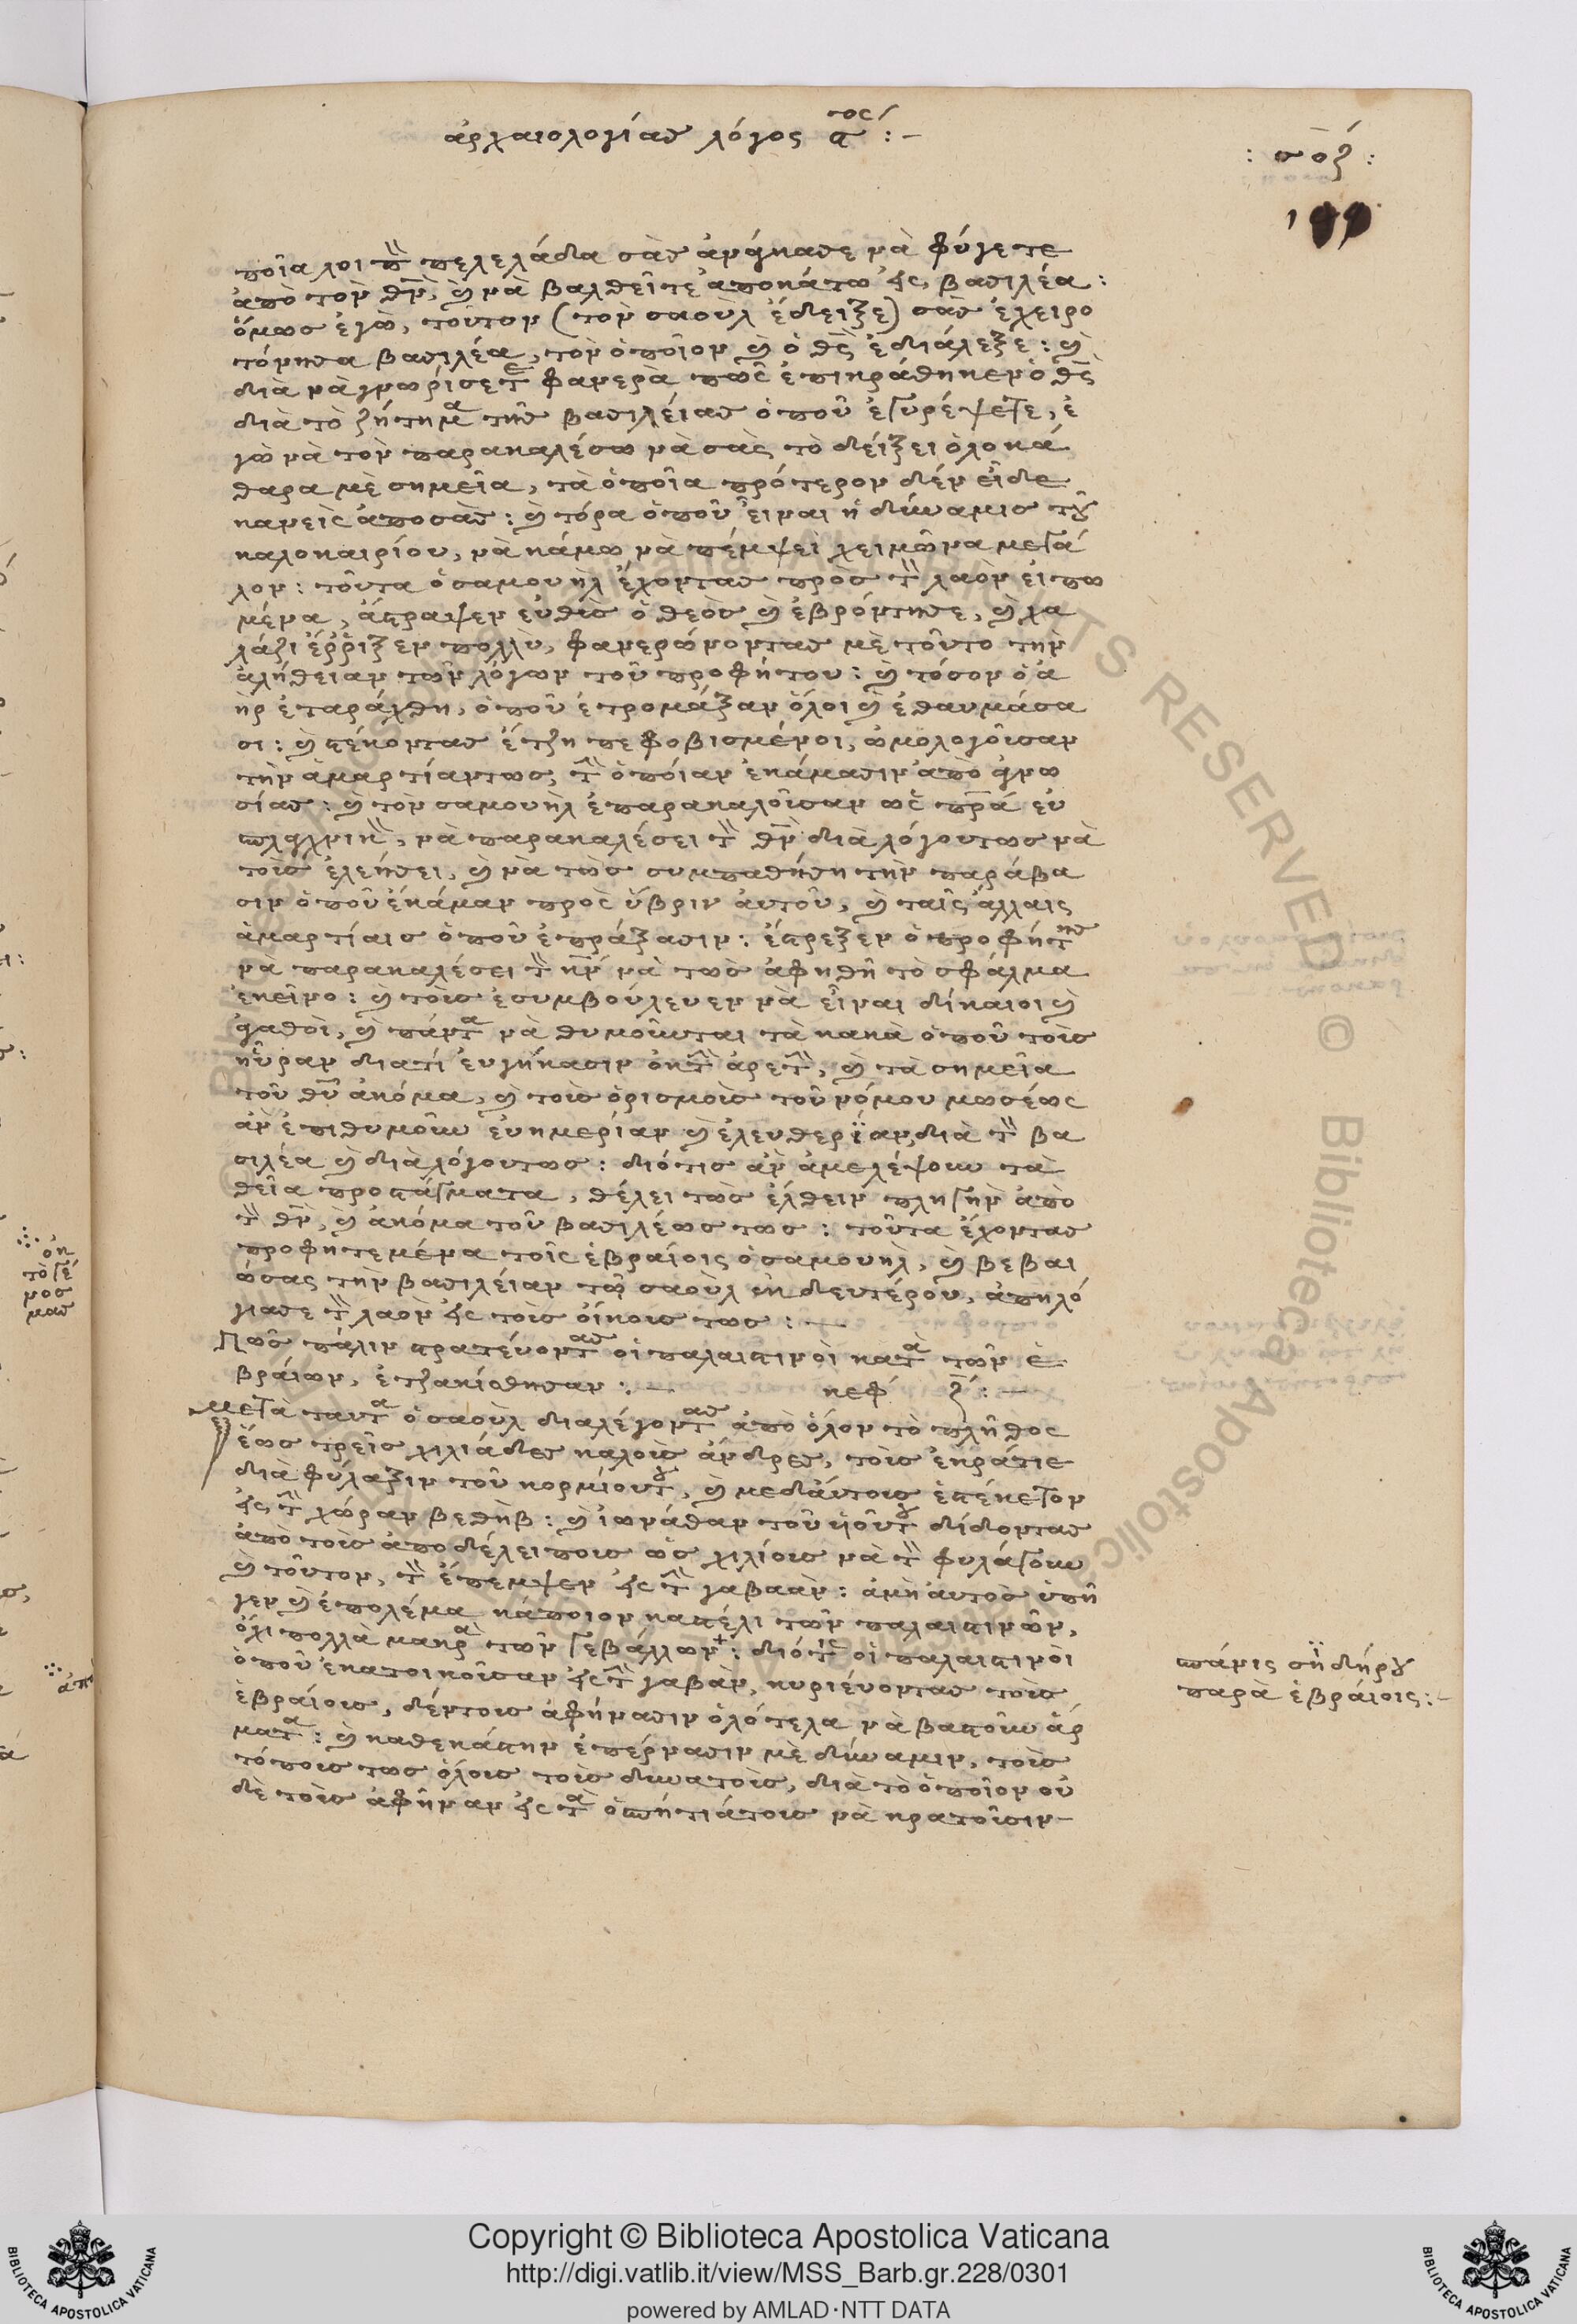 ἀρχαιολογίας λόγος ϛτος :-
: σοζ :
ποῖα λοιπ πελελάδα σὰς ἀνάγκασε νὰ φύγετε
ἀπὸ τὸν θν, ὴ νὰ βαλθεῖτε ἀποκάτω εἰς βασιλέα :
ὅμως ἐγὼ, τοῦτον (τὸν σαοὺλ ἔδειξε) σὰς ἐχειρο
τόνησα βασιλέα, τὸν ὁποῖον ὴ ὁ θς ἐδιάλεξε : ὴ
διὰ νὰ γνωρίσετε φανερὰ πῶς ἐπικράθηκεν ὁ θς
διὰ τὸ ζήτημα τῆς βασιλείας ὁποῦ ἐγυρέψετε, ἐ
γὼ νὰ τὸν παρακαλέσω νὰ σὰς τὸ δείξει ὁλοκά
θαρα μὲ σημεῖα, τὰ ὁποῖα πρότερον δὲν εἶδε
κανεὶς ἀποσὰς : ὴ τόρα ὁποῦ εἶναι ἡ δύναμις τοῦ
καλοκαιρίου, νὰ κάμω νὰ πέμψει χειμῶνα μεγά
λον : τοῦτα ὁ σαμουὴλ ἔχοντας πρὸς τ λαὸν εἰπω
μένα, ἄστραψεν εὐθὺς ὁ θεὸς ὴ ἐβρόντησε, ὴ χα
λάζι ἔῤῥιξεν πολλὺ, φανερώνοντας μὲ τοῦτο τὴν
ἀλήθειαν τῶν λόγων τοῦ προφήτου : ὴ τόσον ὁ ἀ
ὴρ ἐταράχθη, ὁποῦ ἐτρομάξαν ὅλοι ὴ ἐθαυμάσα
σι : ὴ στέκοντας ἔτζη πεφοβισμένοι, ὡμολογοῦσαν
τὴν ἁμαρτίαντως, τ ὁποίαν ἐκάμασιν ἀπὸ ἀγνω
σίας : ὴ τὸν σαμουὴλ ἐπαρακαλοῦσαν ὡς πρα εὐ
νὰ παρακαλέσει τ θν διὰ λόγουτως νὰ
τοὺς ἐλεήσει, ὴ νὰ τὼς συμπαθήσῃ τὴν παράβα
σιν ὁποῦ ἐκάμαν πρὸς ὕβριν αὐτοῦ, ὴ ταῖς ἄλλαις
ἁμαρτίαις ὁποῦ ἐπράξασιν : ἔστρεξεν ὁ προφήτης
νὰ παρακαλέσει τ κν νὰ τὼς ἀφηθῆ τὸ σφάλμα
ἐκεῖνο : ὴ τοὺς ἐσυμβούλευεν νὰ εἶναι δίκαιοι ὴ
ἀγαθοὶ, ὴ πάντα νὰ θυμοῦνται τὰ κακὰ ὁποῦ τοὺς
ηὗραν διατὶ εὐγήκασιν ὀκτ ἀρετ, ὴ τὰ σημεῖα
τοῦ θυ ἀκόμα, ὴ τοὺς ὁρισμοὺς τοῦ νόμου μωσέως
ἂν ἐπιθυμοῦν εὐημερίαν ὴ ἐλευθερίαν, διὰ τ βα
σιλέα ὴ διὰ λόγουτως : διότις ἂν ἀμελέψουν τὰ
θεῖα προστάγματα, θέλει τὼς ἐλθεῖν πληγὴν ἀπὸ
τ θν, ὴ ἀκόμα τοῦ βασιλέως τως : τοῦτα ἔχοντας
προφητεμένα τοῖς ἑβραίοις ὁ σαμουὴλ, ὴ βεβαι
ώσας τὴν βασιλείαν τῷ σαοὺλ ἐκ δευτέρου, ἀπηλό
γιασε τ λαὸν εἰς τοὺς οἴκους τως : —
Πῶς πάλιν στρατέυοντας οἱ παλαιστινοὶ κατὰ τῶν ἑ
βραίων, ἐτζακίσθησαν : — κεφ ζ : —
Μετὰ ταυτα ὁ σαοὺλ διαλέγοντας ἀπὸ ὅλον τὸ πλῆθος
ἕως τρεῖς χιλιάδες καλοὺς ἄνδρες, τοὺς ἐκράτιε
διὰ φύλαξιν τοῦ κορμίουτου, ὴ μεδάυτους ἐστέκετον
εἰς τ χώραν βεθὴβ : ὴ ἰωνάθαν τοῦ υἱοῦτου δίδοντας
ἀπὸ τοὺς ἀποδέλειπους ὡς χιλίους νὰ τ φυλάγουν
ὴ τοῦτον, τ ἔπεμψεν εἰς τ γαβαὰν : ἀμὴ αὐτὸς ὑπῆ
γεν ὴ ἐπολέμα κάποιον καστέλι τῶν παλαιστινῶν,
ὄχι πολλὰ μακρὰ τῶν γεβάλλων+ : διότις οἱ παλαιστινοὶ
ὁποῦ ἐκατοικοῦσαν εἰς τ γαβὰν, κυριέυοντας τοὺς
ἑβραίους, δέντους ἀφήνασιν ὁλότελα νὰ βαστοῦν ἄρ
ματα : ὴ καθεκάστην ἐπέρνασιν μὲ δύναμιν, τοὺς
τόπους τως ὅλους τοὺς δυνατοὺς, διὰ τὸ ὁποῖον οὐ
δὲ τοὺς ἀφῆναν εἰς τὰ ὁσπήτιάτους νὰ κρατοῦσιν-
σπάνις σϊδήρου
παρὰ ἑβράιοις :-
Copyright © Biblioteca Apostolica Vaticana
http://digi.vatlib.it/view/MSS_Barb.gr.228/0301
powered by AMLAD·NTT DATA
BIBLIOTECA APOSTOLICA VATICANA
BIBLIOTECA APOSTOLICA VATICANA